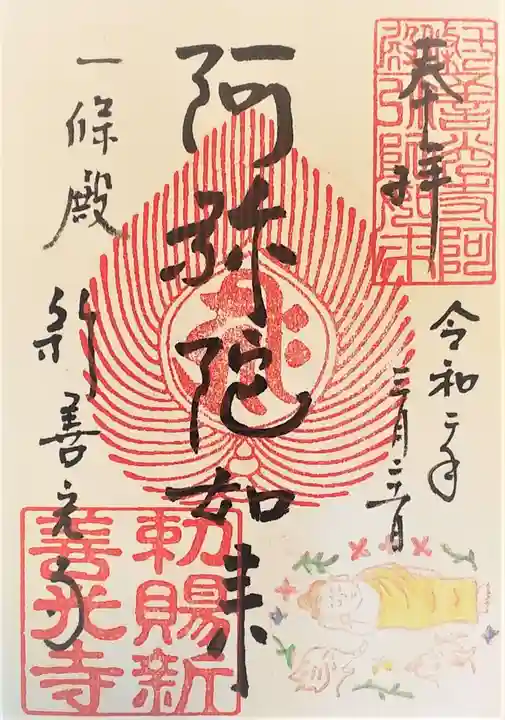 奉拝
令和二年
三月二十一日
阿弥陀如来
一條殿 新善光寺
勅賜新
善光寺